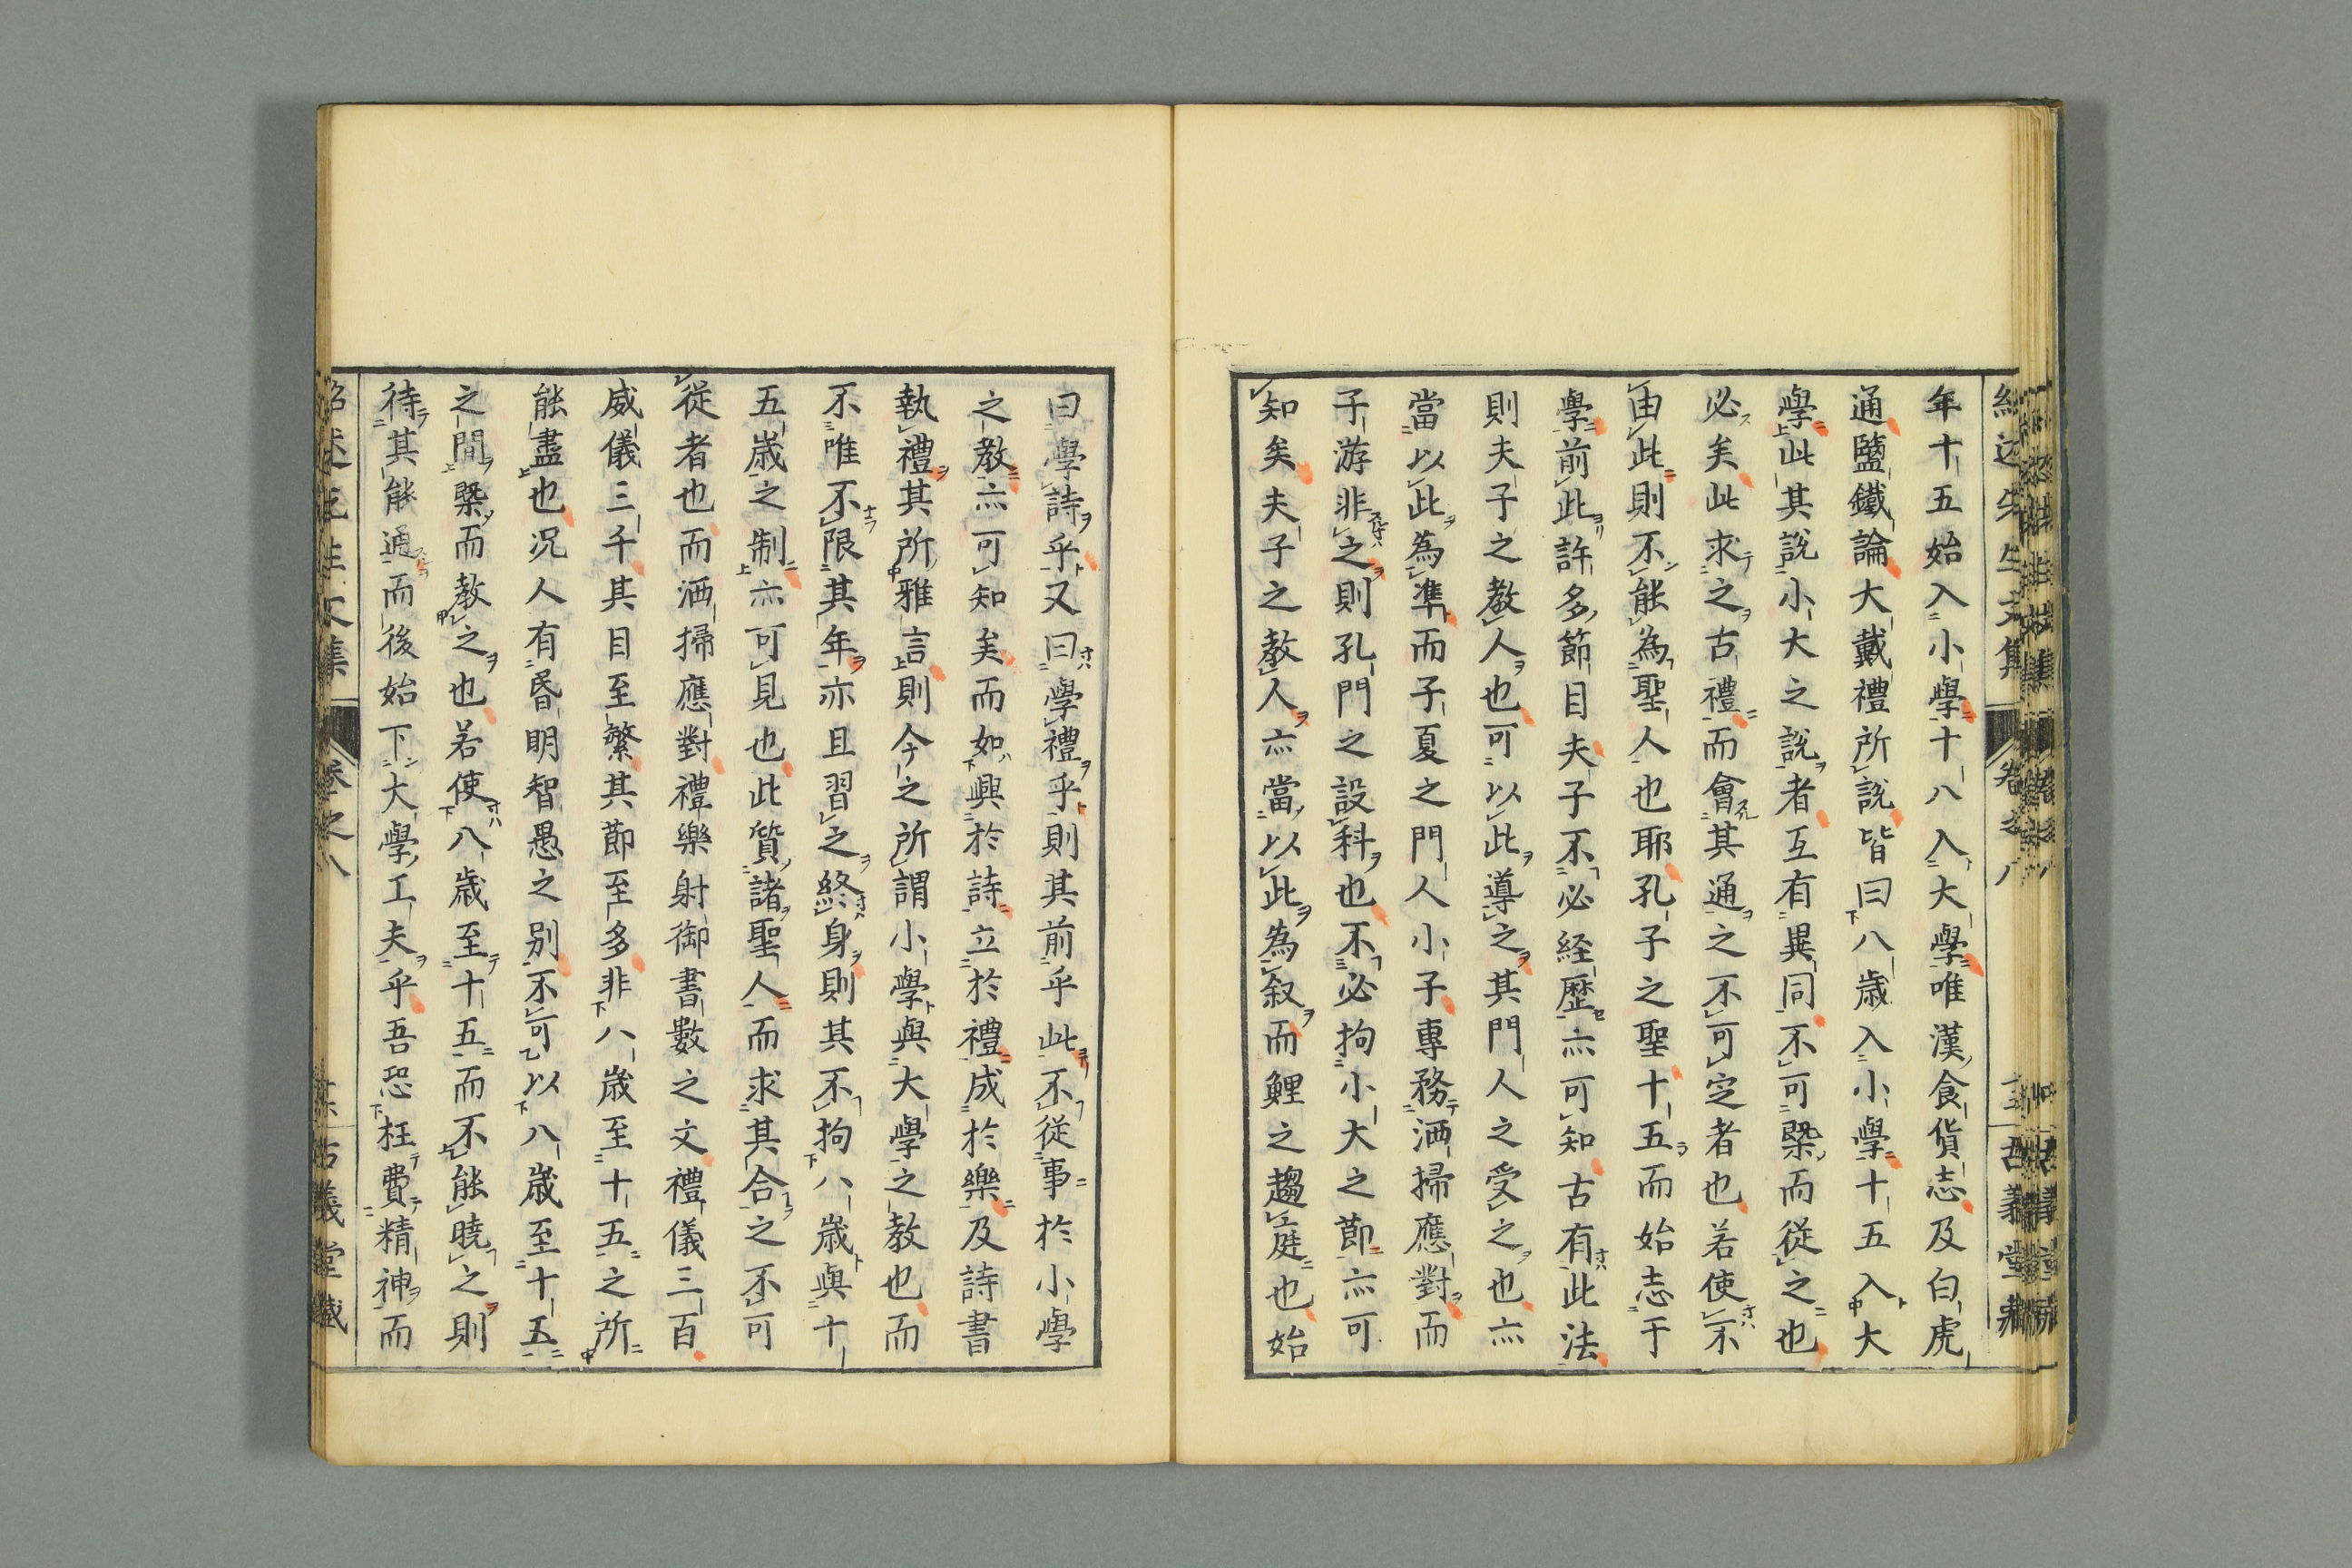 年十五始入小學十八入大學唯漢食貨志及白虎
通鹽鐵論大戴禮所說皆曰八歲入小學十五入大
學此其說小大之說者互有異同不可槩而從之也
必矣此求之古禮而會其通之不可定者也若使不
由此則不能為聖人也耶孔子之聖十五而始志于
學前此許多節目夫子不必経歷亦可知古有此法
則夫子之教人也可以此導之其門人之受之也亦
當以此為準而子夏之門人小子專務洒掃應對而
子游非之則孔門之設科也不必拘小大之節亦可
知矣夫子之教人亦當以此為叙而鯉之趨庭也始
曰學詩乎又曰學禮乎則其前乎此不從事於小學
之教亦可知矣而如興於詩立於禮成於樂及詩書
執禮其所雅言則今之所謂小學與大學之教也而
不唯不限其年亦且習之終身則其不拘八歲與十
五歲之制亦可見也此質諸聖人而求其合之不可
從者也而洒掃應對禮樂射御書數之文禮儀三百
威儀三千其目至繁其節至多非八歲至十五之所
能盡也况人有昬明智愚之別不可以八歲至十五
之間槩而教之也若使八歲至十五而不能曉之則
待其能通而後始下大學工夫乎吾恐枉費精神而
卷之八
古義堂藏